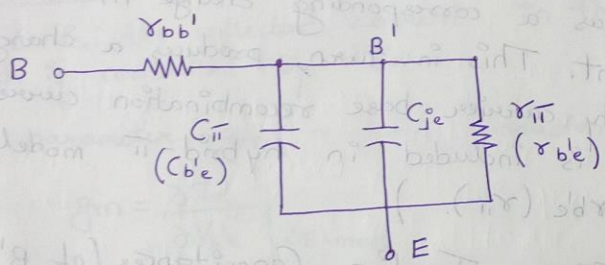 r_bb'
B
B'
C_π
(C_b'e)
C_je
r_π
(r_b'e)
E